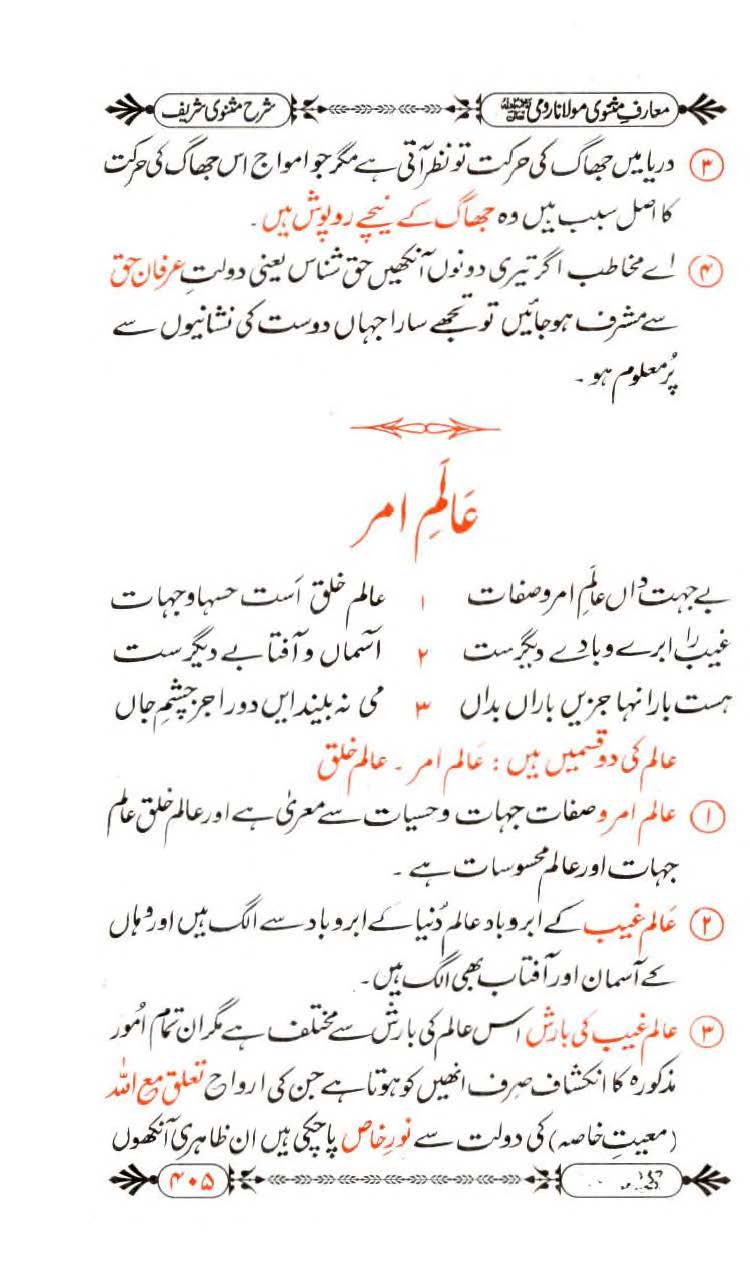 معارفِ مثنوی مولانا رومی
شرح مثنوی شریف
۳ دریا میں جھاگ کی حرکت تو نظر آتی ہے مگر جو امواج اس جھاگ کی حرکت
کا اصل سبب ہیں وہ جھاگ کے نیچے روپوش ہیں ۔
۴ اے مخاطب اگر تیری دونوں آنکھیں حق شناس یعنی دولتِ عرفانِ حق
سے مشرف ہو جائیں تو تجھے سارا جہاں دوست کی نشانیوں سے
پُر معلوم ہو ۔
عَالَمِ امر
بے جہت داں عالَمِ امر و صفات ۱ عالم خلق اَست حسہا و جہات
غیب را ابرے و بادے دیگرست ۲ آسماں و آفتابے دیگرست
ہست بارانہا جزیں باراں بداں ۳ می نہ بیند ایں دو را جز چشمِ جاں
عالم کی دو قسمیں ہیں : عَالم امر ۔ عالم خلق
۱ عالم امر و صفات جہات و حسیات سے معریٰ ہے اور عالم خلق عالم
جہات اور عالم محسوسات ہے ۔
۲ عَالم غیب کے ابر و باد عالم دُنیا کے ابر و باد سے الگ ہیں اور وہاں
کے آسمان اور آفتاب بھی الگ ہیں ۔
۳ عالم غیب کی بارش اس عالم کی بارش سے مختلف ہے مگر ان تمام اُمور
مذکورہ کا انکشاف صرف انھیں کو ہوتا ہے جن کی ارواح تعلق مع اللہ
(معیتِ خاصہ) کی دولت سے نورِ خاص پا چکی ہیں ان ظاہری آنکھوں
۴۰۵